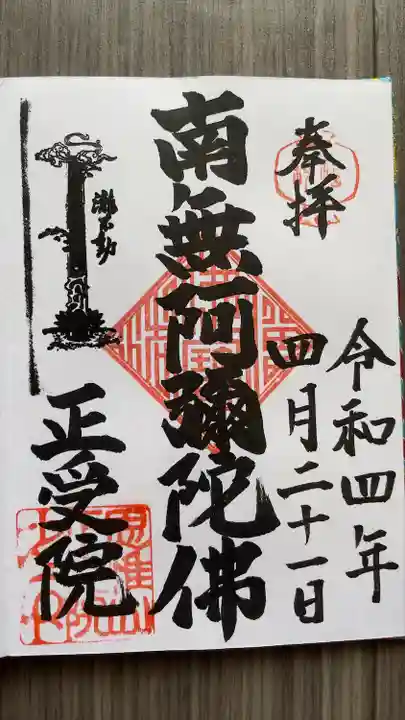 奉拝
令和四年
四月二十一日
南無阿彌陀佛
正受院